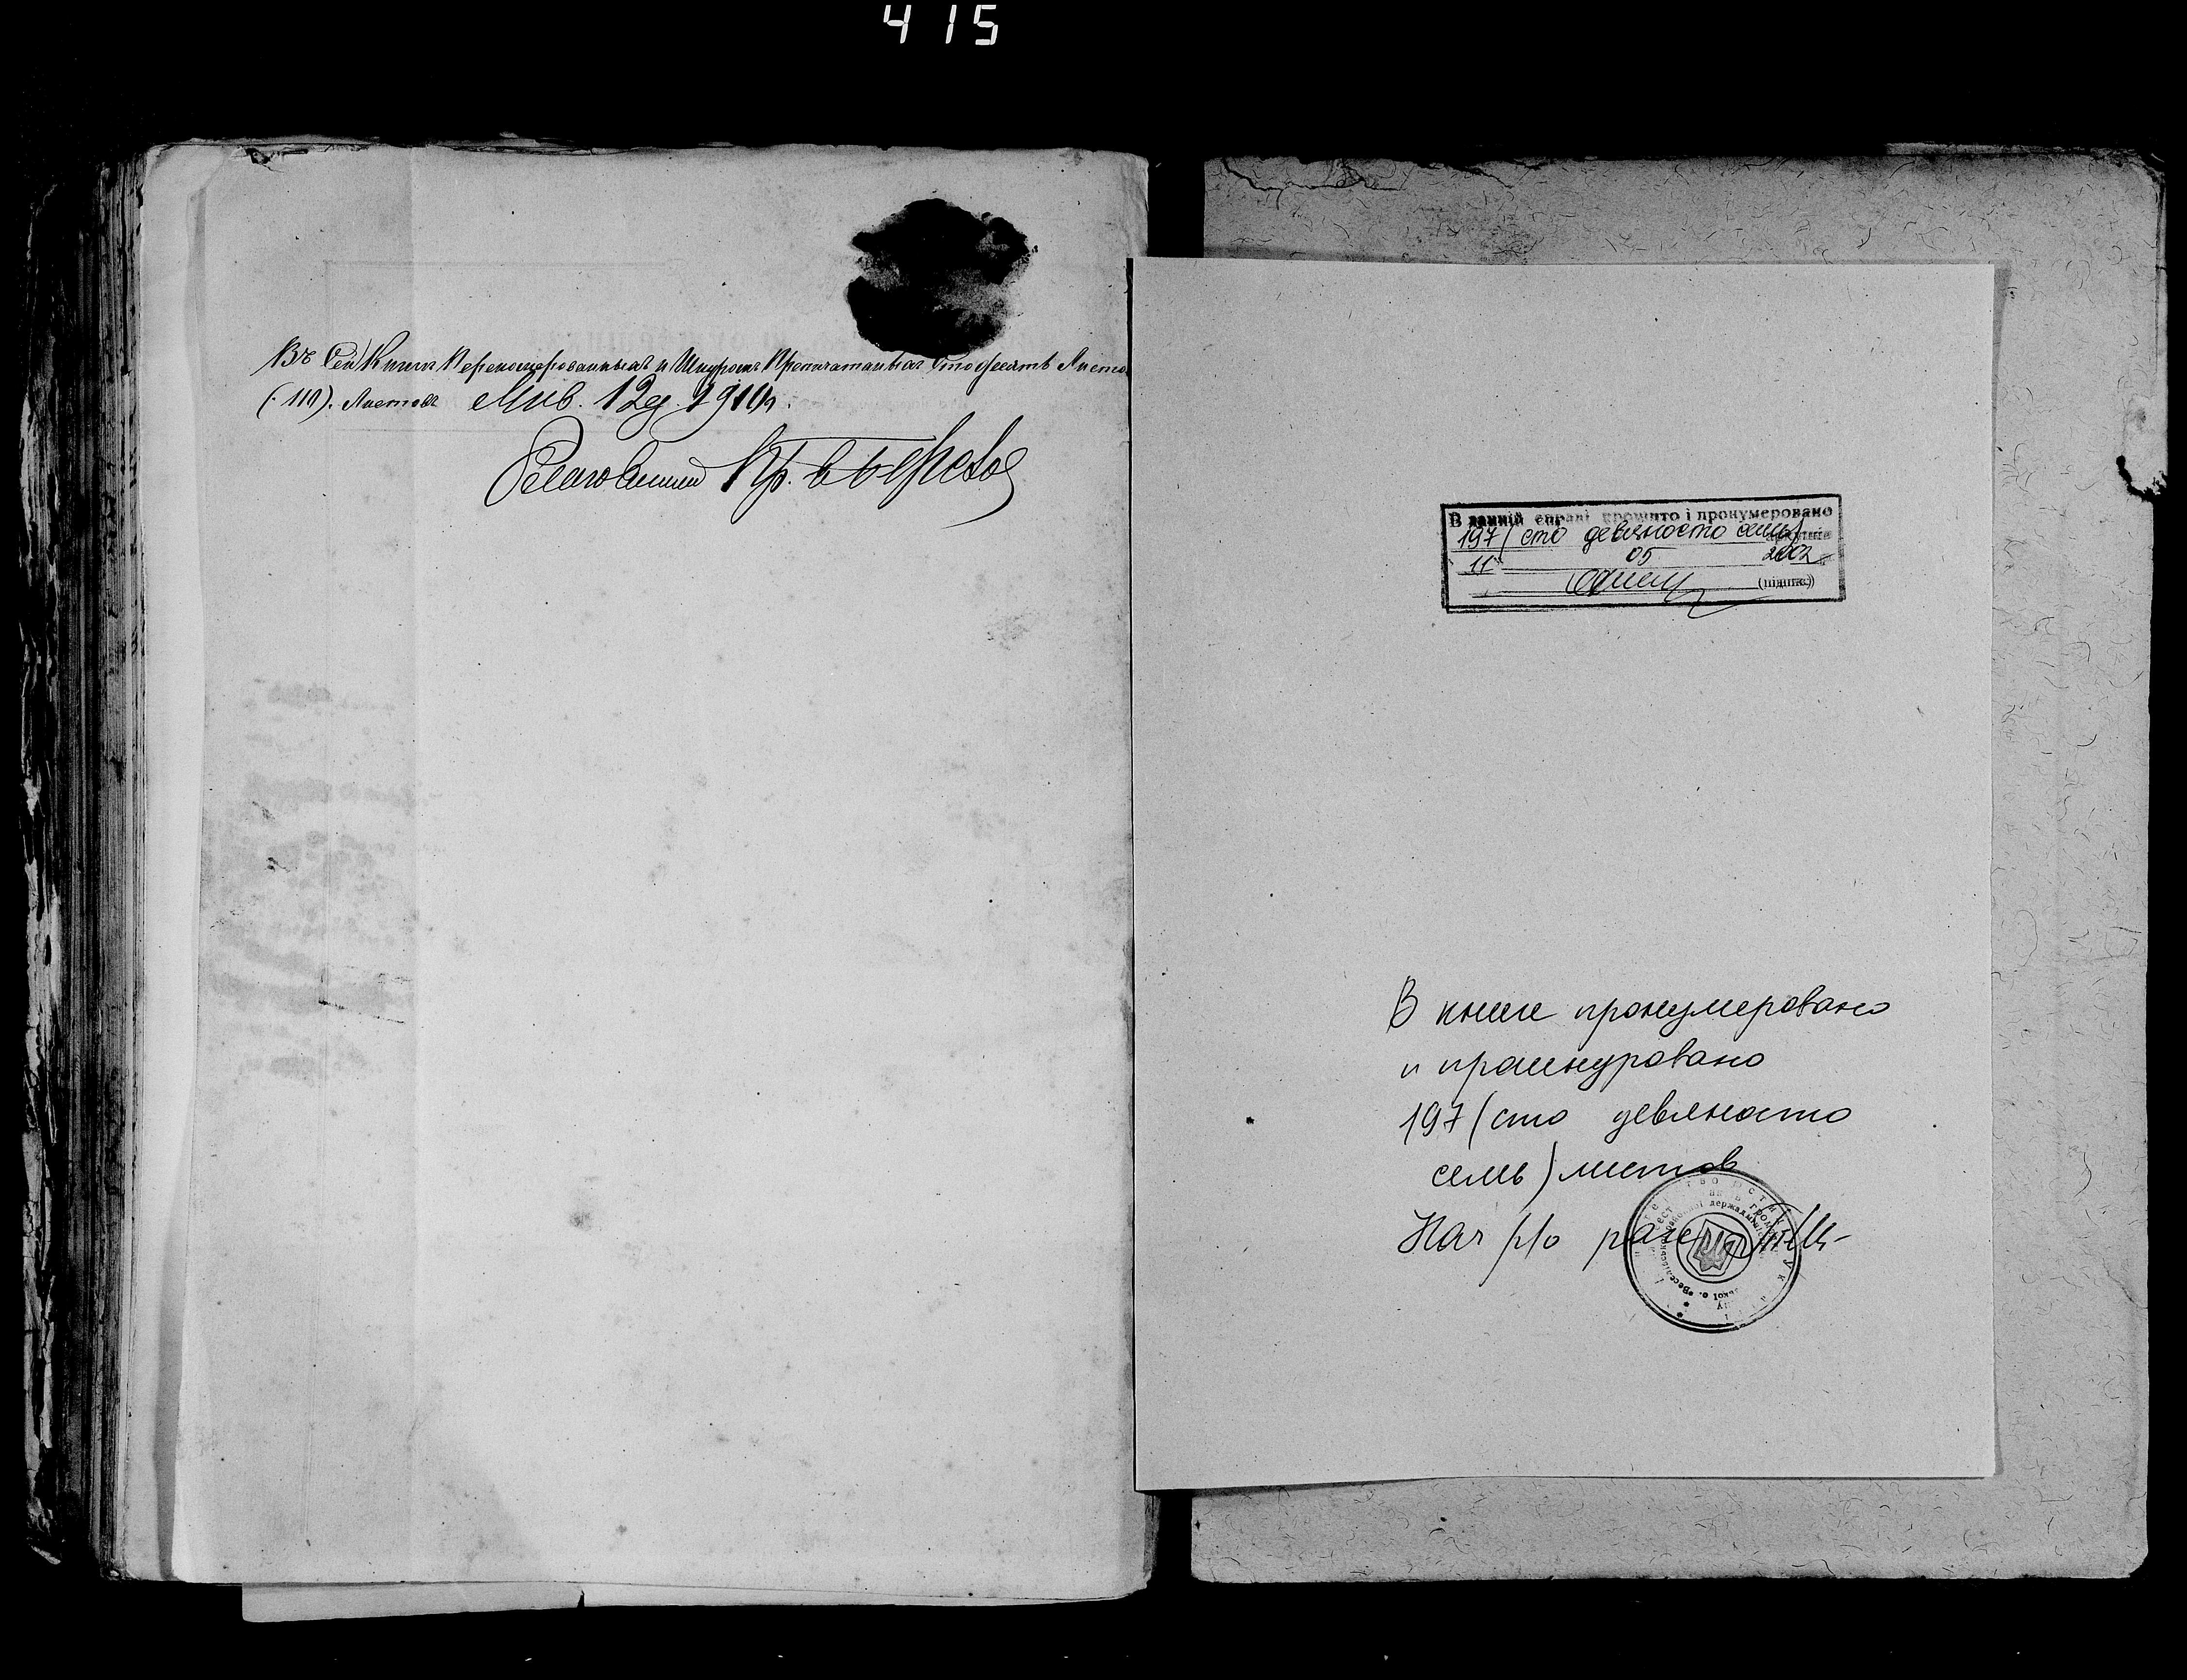 415
Въ Сей Книгѣ Перенумерованныхъ и Шнуромъ Припечатанныхъ Сто десять Листо
(110). Листовъ Янв. 12 д. 1910 г.
В даній справі прошито і пронумеровано
197 (сто девяносто семь)
11 05 2002
(підпис)
В книге пронумеровано
и прошнуровано
197 (сто девяносто
семь) листов
Нач р/о